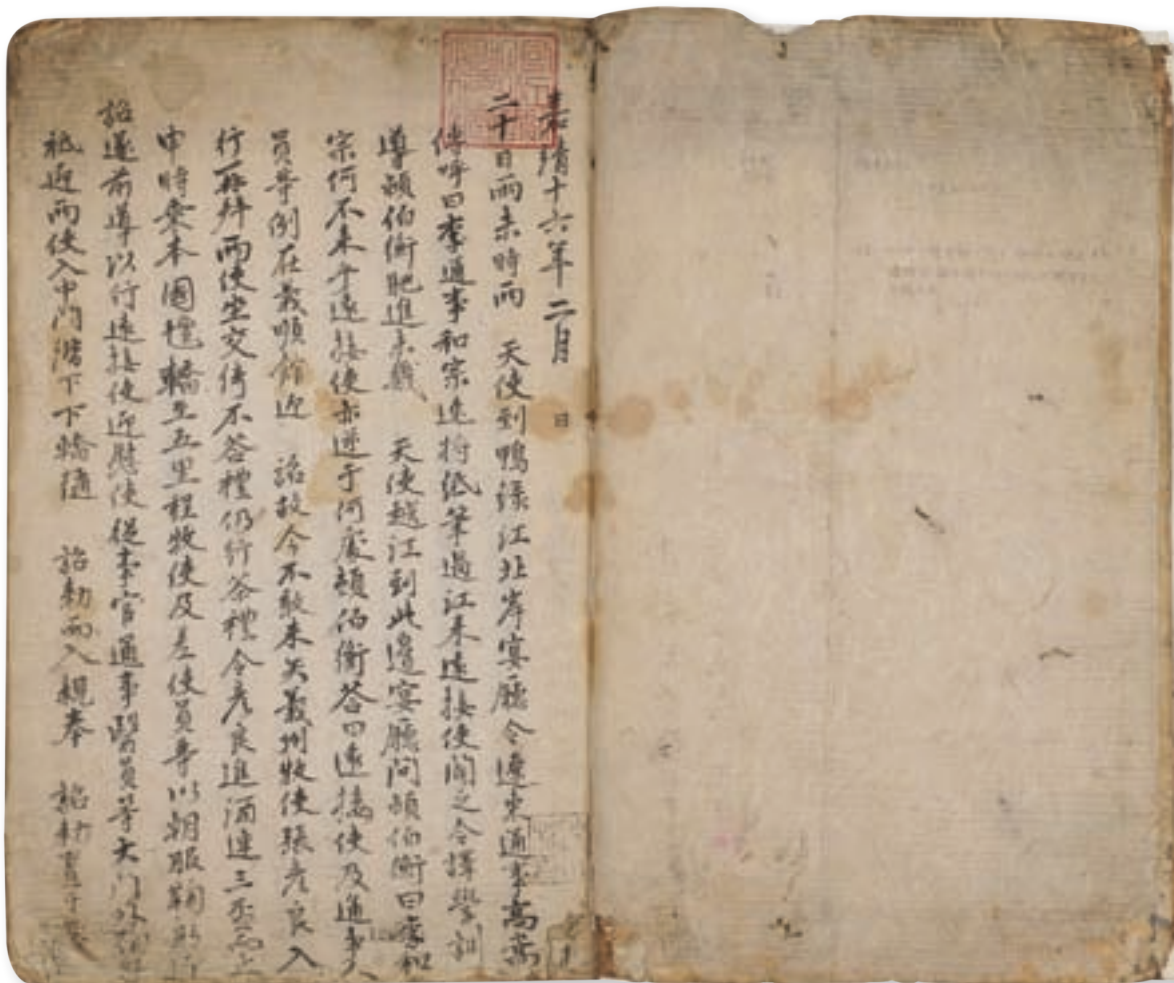 嘉靖十六年二月 日
二十日雨未時雨 天使到鴨綠江北岸宴廳令遼東通事高
傳呼曰李通事和宗速持紙筆過江來遠接使聞之令譯學訓
導頓伯衡馳進未幾 天使越江到此邊宴廳問頓伯衡曰李和
宗何不來乎遠接使亦迎于何處頓伯衡答曰遠接使及通事
員等例在義順館迎 詔故今不敢來矣義州牧使張彥良入
行再拜兩使坐交倚不答禮仍行茶禮令彥良進酒連三盃而
申時乘本國轎至五里程牧使及差使員等以朝服鞠躬
詔遂前導以行遠接使迎慰使從事官通事醫員等大門外
祗迎兩使入中門階下下轎隨 詔勅而入親奉 詔勅置于